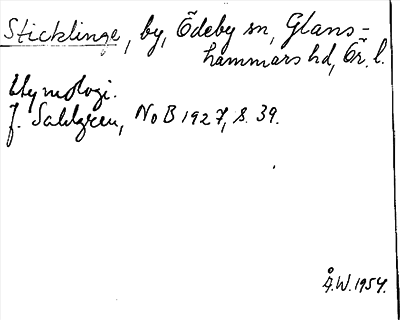 Sticklinge, by, Ödeby sn, Glans-
hammars hd, Ör. l.
Etymologi.
J. Sahlgren, NoB 1927, s. 39.
Å.W. 1954.